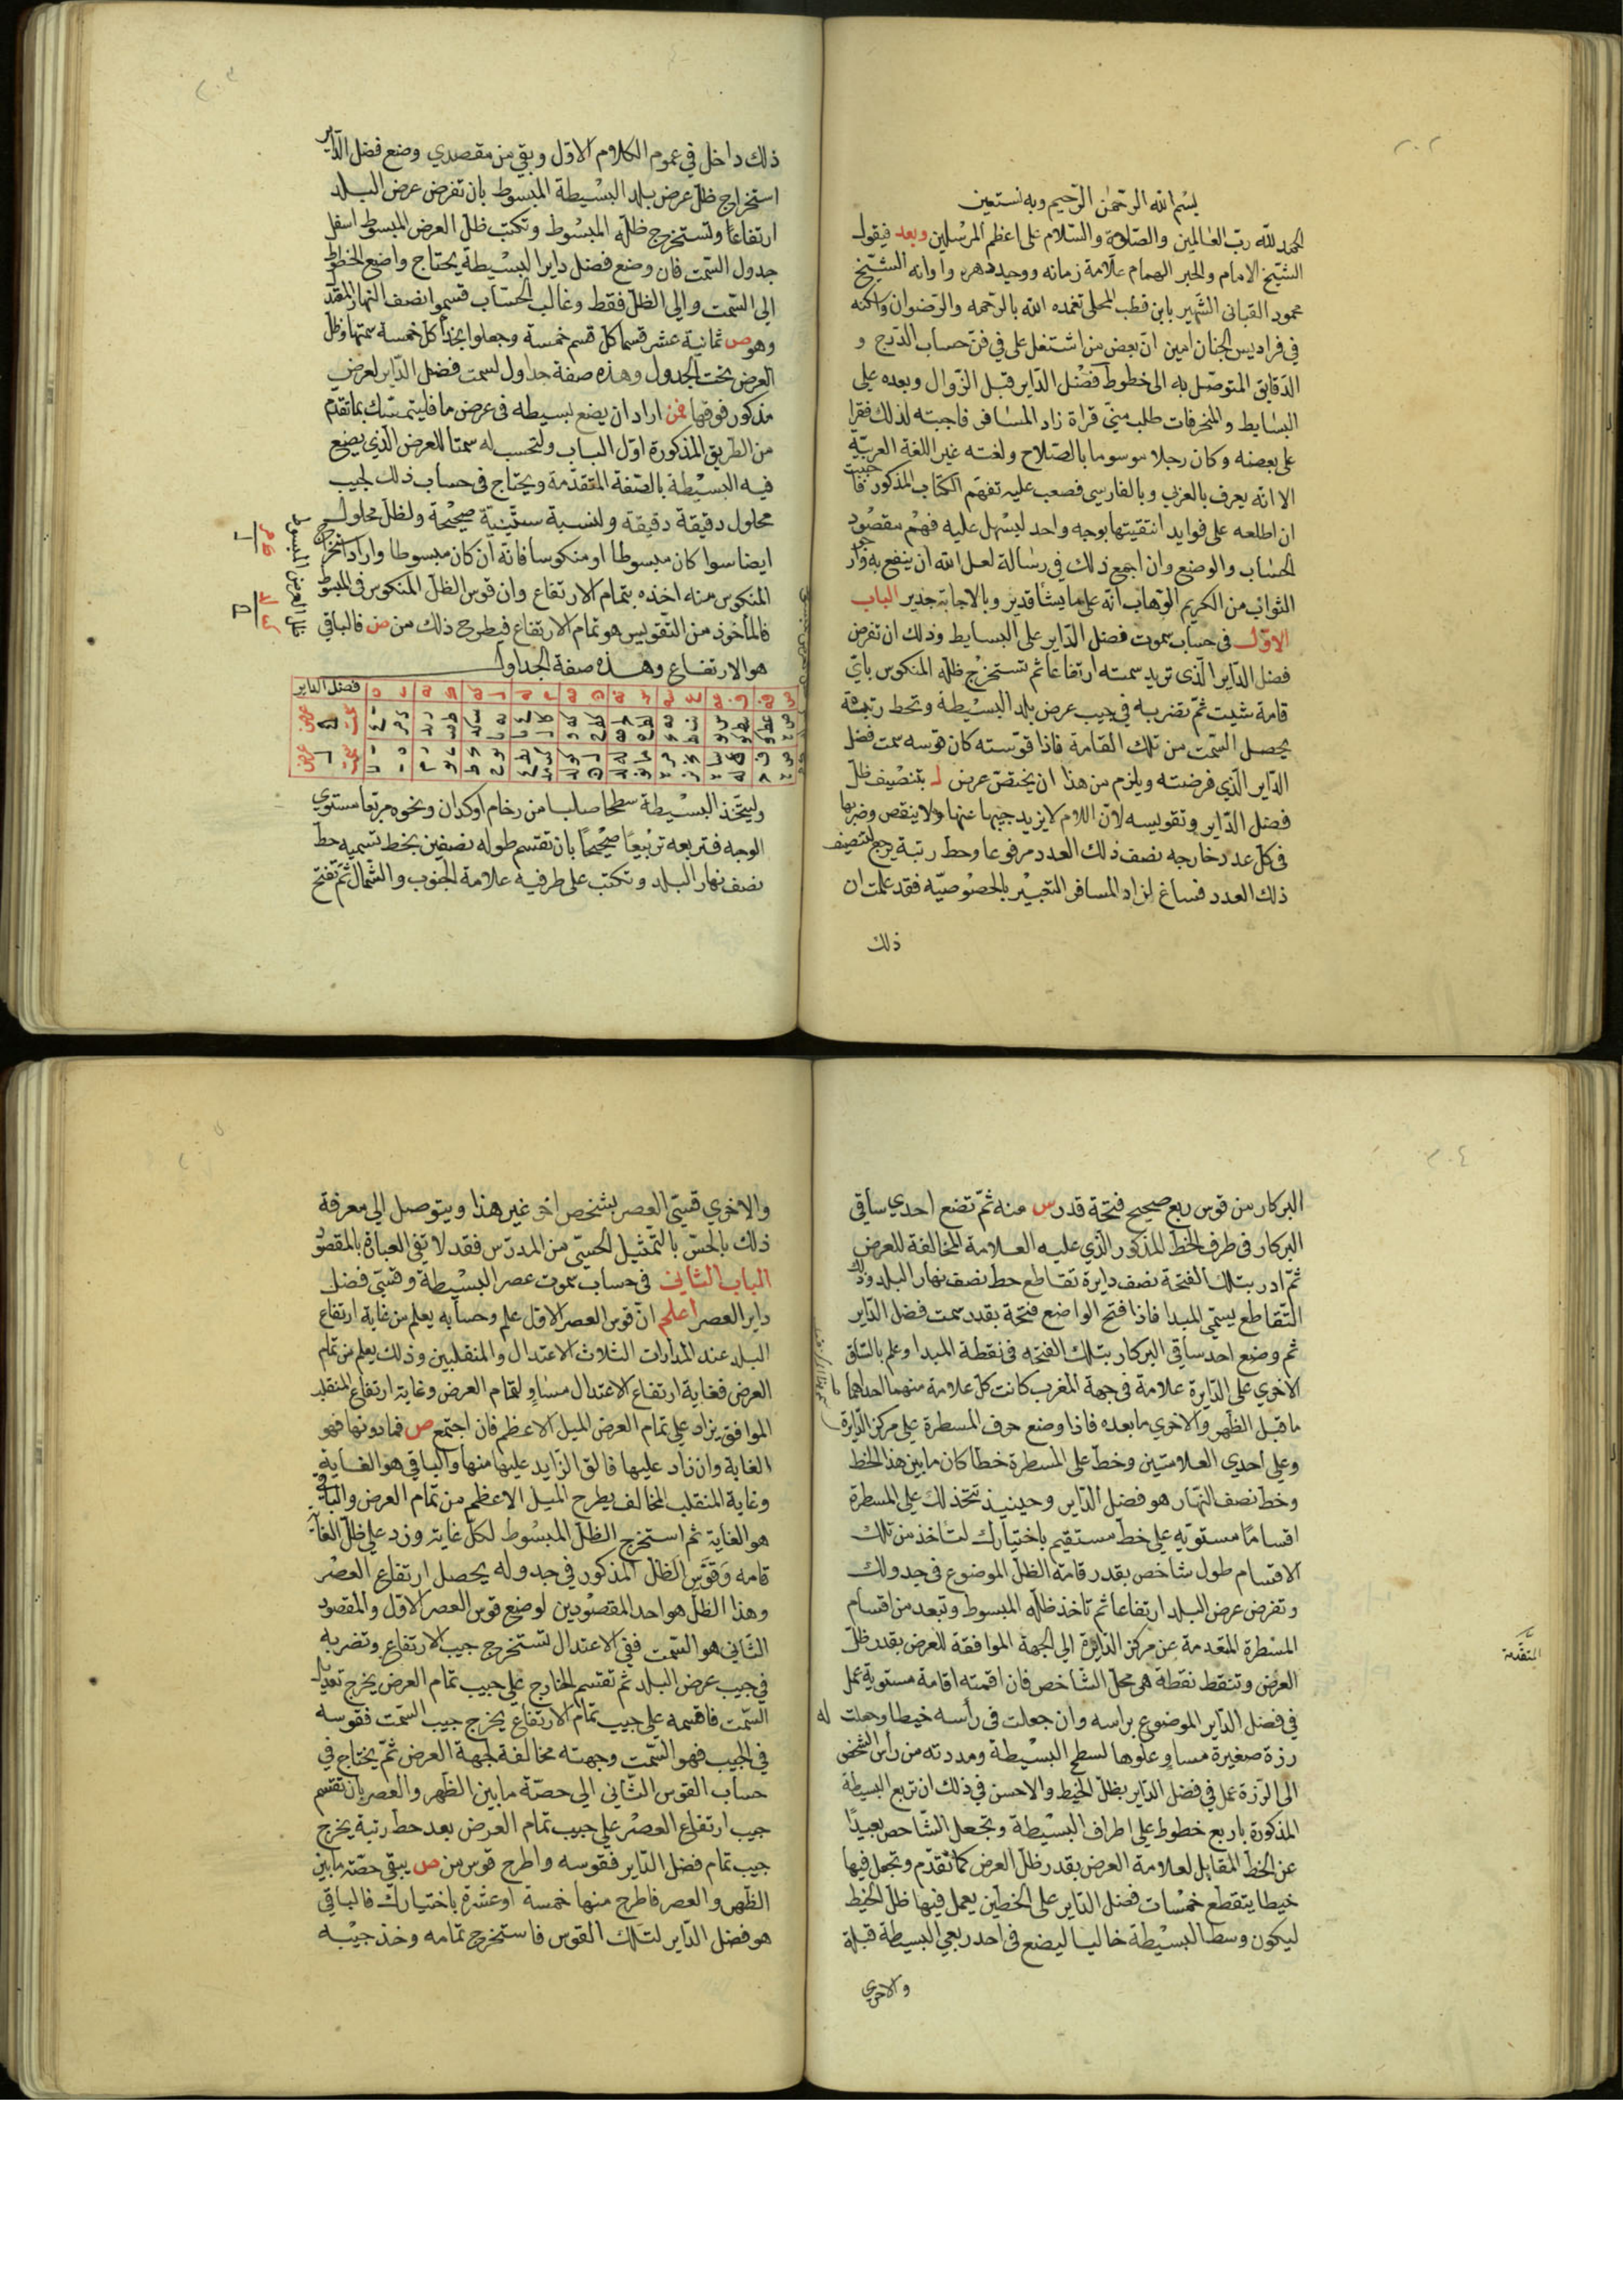 ٢٠٢
بسم الله الرحمن الرحيم وبه نستعين
الحمد لله رب العالمين والصلاة والسلام على اعظم المرسلين وبعد فيقول
الشيخ الامام والحبر الهمام علامة زمانه ووحيد دهره واوانه الشيخ
محمود القبانى الشهير بابن قطب المحلى تغمده الله بالرحمه والرضوان واسكنه
في فراديس الجنان امين ان بعض من اشتغل على في فن حساب الدرج و
الدقايق المتوصل به الى خطوط فضل الداير قبل الزوال وبعده على
البسايط والمنحرفات طلب منى قراة زاد المسافر فاجبته لذلك فقرا
على بعضه وكان رجلا موسوما بالصلاح ولغته غير اللغة العربية
الا انه يعرف بالعربي وبالفارسي فصعب عليه تفهم الكتاب المذكور فاحببت
ان اطلعه على فوايد انتقيتها بوجه واحد ليسهل عليه فهم مقصود
الحساب والوضع وان اجمع ذلك في رسالة لعل الله ان ينفع به وارجو
الثواب من الكريم الوهاب انه على ما يشا قدير وبالاجابة جدير الباب
الاول في حساب سموت فضل الداير على البسايط وذلك ان تفرض
فضل الداير الذى تريد سمته ارتفاعا ثم تستخرج ظله المنكوس باي
قامة شيت ثم تضربه في جيب عرض بلد البسيطة وتحط رتبة
يحصل السمت من تلك القامة فاذا قوسته كان قوسه سمت فضل
الداير الذي فرضته ويلزم من هذا ان يختص عرض ل بتنصيف ظل
فضل الداير وتقويسه لان اللام لا يزيد جيبها عنها ولا ينقص وضربها
في كل عدد خارجه نصف ذلك العدد مرفوعا وحط رتبة يرجع لتنصيف
ذلك العدد فساغ لزاد المسافر التعبير بالخصوصيه فقد علمت ان
ذلك
ذلك داخل في عموم الكلام الاول وبقي من مقصدي وضع فضل الداير
استخراج ظل عرض بلد البسيطة المبسوط بان تفرض عرض البلد
ارتفاعا وتستخرج ظله المبسوط وتكتب ظل العرض المبسوط اسفل
جدول السمت فان وضع فضل داير البسيطة يحتاج واضع الخطوط
الى السمت والى الظل فقط وغالب الحساب قسموا نصف النهار المقدر
وهو ص ثمانية عشر قسما كل قسم خمسة وجعلوا بحذا كل خمسة سمتها وظل
العرض تحت الجدول وهذه صفة جداول لسمت فضل الداير لعرض
مذكور فوقها فمن اراد ان يضع بسيطه في عرض ما فليتمسك بما تقدم
من الطريق المذكورة اول الباب وليحسب له سمتا للعرض الذي يضع
فيه البسيطة بالصفة المتقدمة ويحتاج في حساب ذلك لجيب
محلول دقيقة دقيقة ولنسبة ستينية صحيحة ولظل محلول
ايضا سوا كان مبسوطا او منكوسا فانه ان كان مبسوطا واراد استخراج
المنكوس منه اخذه بتمام الارتفاع وان قوس الظل المنكوس في المبسوط
فالماخوذ من التقويس هو تمام الارتفاع فيطرح ذلك من ص فالباقي
هو الارتفاع وهذه صفة الجداول
ظل العرض المبسوط
فضل الداير
وليتخذ البسيطة سطحا صلبا من رخام او كدان ونحوه مربعا مستوي
الوجه فتربعه تربيعا صحيحا بان تقتسم طوله نصفين بخط تسميه خط
نصف نهار البلد وتكتب على طرفيه علامة الجنوب والشمال ثم تفتح
٢٠٤
البركار من قوس ربع صحيح فتحة قدر س منه ثم تضع احدي ساقي
البركار في طرف الخط المذكور الذي عليه العلامة المخالفة للعرض
ثم ادر بتلك الفتحة نصف دايرة تقاطع خط نصف نهار البلد وذلك
التقاطع يسمي المبدا فاذا فتح الواضع فتحة بقدر سمت فضل الداير
ثم وضع احد ساقي البركار بتلك الفتحه في نقطة المبدا وعلم بالساق
الاخري على الدايرة علامة في جهة المغرب كانت كل علامة منهما احداهما
ما قبل الظهر والاخري ما بعده فاذا وضع حرف المسطرة على مركز الدايرة
وعلى احدي العلامتين وخط على المسطرة خطا كان ما بين هذا الخط
وخط نصف النهار هو فضل الداير وحينيذ تتخذ لك على المسطرة
اقساما مستويه على خط مستقيم باختيارك لتاخذ من تلك
الاقسام طول شاخص بقدر قامة الظل الموضوع في جدولك
وتفرض عرض البلد ارتفاعا ثم تاخذ ظله المبسوط وتبعد من اقسام
المسطرة المتقدمة عن مركز الدايرة الى الجهة الموافقة للعرض بقدر ظل
العرض وتنقط نقطة هي محل الشاخص فان اقمته اقامة مستوية عمل
في فضل الداير الموضوع براسه وان جعلت في راسه خيطا وجعلت له
رزة صغيرة مساو علوها لسطح البسيطة ومددته من راس الشخص
الى الرزة عمل في فضل الداير بظل الخيط والاحسن في ذلك ان تربع البسيطة
المذكورة باربع خطوط على اطراف البسيطة وتجعل الشاخص بعيدا
عن الخط المقابل لعلامة العرض بقدر ظل العرض كما تقدم وتجعل فيها
خيطا يتقطع خمسات فضل الداير على الخطين يعمل فيها ظل الخيط
ليكون وسط البسيطة خاليا ليضع في احد ربعي البسيطة قبلة
والاخري
المتقدمة
والاخري قسيّ العصر بشخص اخر غير هذا ويتوصل الي معرفة
ذلك بالحس بالتمثيل الحسيّ من المدرس فقد لا تفي العبارة بالمقصود
الباب الثاني في حساب سموت عصر البسيطة وقسي فضل
داير العصر اعلم ان قوس العصر الاول علم وحسابه يعلم من غاية ارتفاع
البلد عند المدارات الثلاث الاعتدال والمنقلبين وذلك يعلم من تمام
العرض فغاية ارتفاع الاعتدال مساو لتمام العرض وغاية ارتفاع المنقلب
الموافق يزاد على تمام العرض الميل الاعظم فان اجتمع ص فمادونها فهو
الغاية وان زاد عليها فالق الزايد عليها منها والباقي هو الغاية
وغاية المنقلب المخالف يطرح الميل الاعظم من تمام العرض والباقي
هو الغاية ثم استخرج الظل المبسوط لكل غاية وزد على ظل الغاية
قامه وقوس الظل المذكور في جدوله يحصل ارتفاع العصر
وهذا الظل هو احد المقصودين لوضع قوس العصر الاول والمقصود
الثاني هو السمت ففي الاعتدال تستخرج جيب الارتفاع وتضربه
في جيب عرض البلد ثم تقتسم الخارج على جيب تمام العرض يخرج تعديل
السمت فاقسمه على جيب تمام الارتفاع يخرج جيب السمت فقوسه
في الجيب فهو السمت وجهته مخالفة لجهة العرض ثم يحتاج في
حساب القوس الثاني الي حصة ما بين الظهر والعصر بان تقتسم
جيب ارتفاع العصر على جيب تمام العرض بعد حط رتبة يخرج
جيب تمام فضل الداير فقوسه واطرح قوس من ص يبقي حصة ما بين
الظهر والعصر فاطرح منها خمسة او عشرة باختيارك فالباقي
هو فضل الداير لتلك القوس فاستخرج تمامه وخذ جيبه